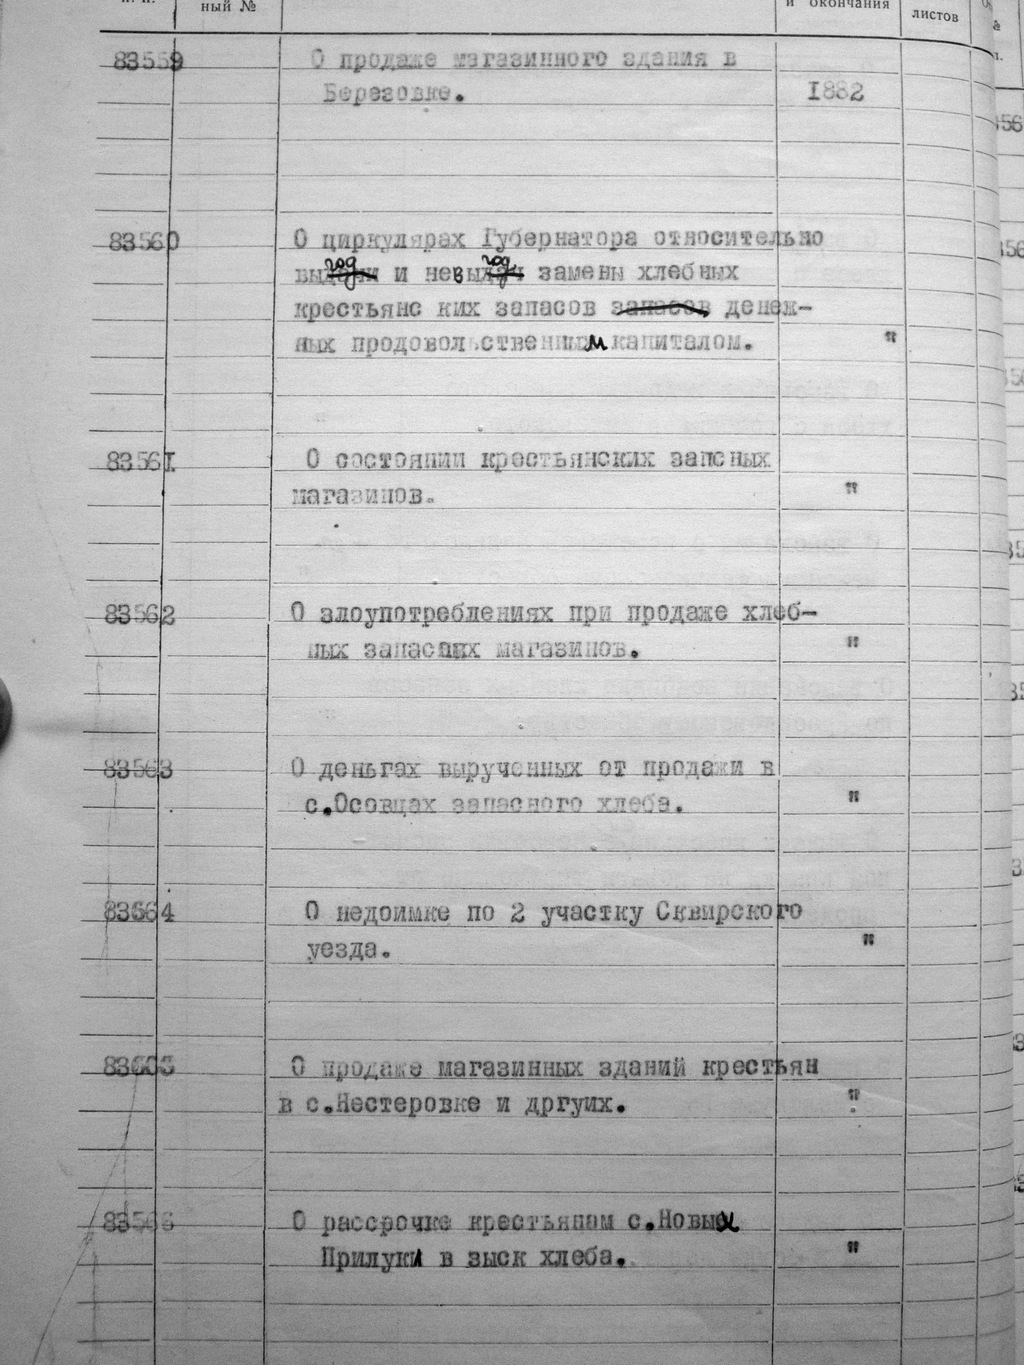 ный №
и окончания
листов
83559 О продаже магазинного здания в
Березовке. 1882
83560 О циркулярах Губернатора относительно
выгод и невыгод замены хлебных
крестьянс ких запасов запасов денеж-
ных продовольственным капиталом. "
83561 О состоянии крестьянских запсных
магазинов. "
83562 О злоупотреблениях при продаже хлеб-
ных запасных магазинов. "
83563 О деньгах вырученных от продажи в
с.Осовцах запасного хлеба. "
83564 О недоимке по 2 участку Сквирского
уезда. "
83565 О продаже магазинных зданий крестьян
в с.Нестеровке и дргуих. "
83566 О рассрочке крестьянам с.Новых
Прилуки в зыск хлеба. "